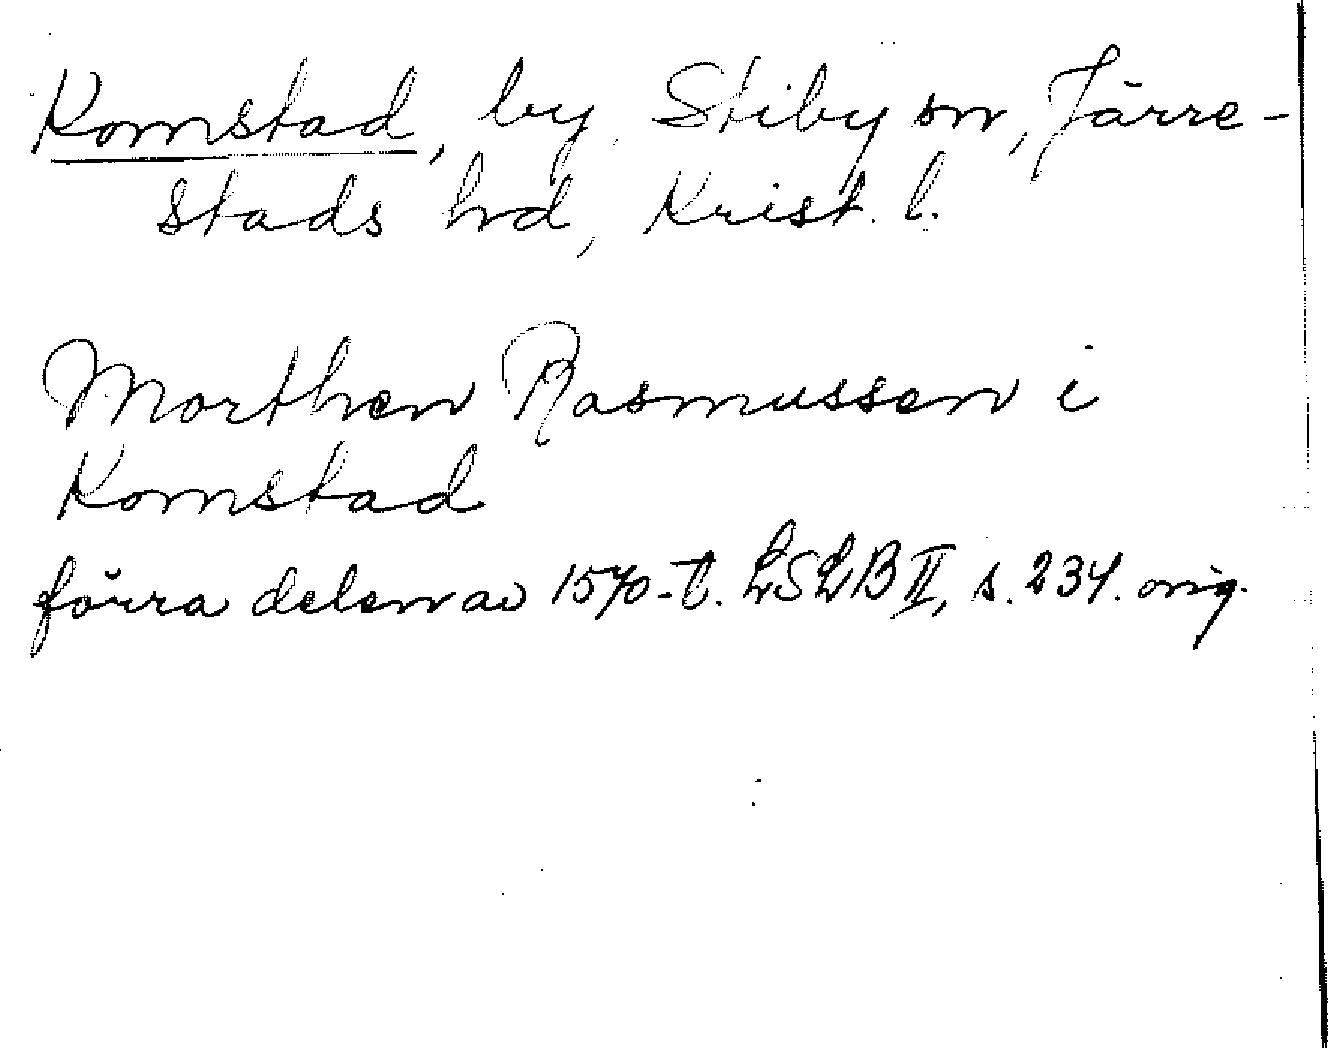 Komstad, by, Stiby sn, Järre-
stads hd, Krist. l.
Morthen Rasmussen i
Komstad
förra delen av 1570-t. LSLB II, s. 234. orig.